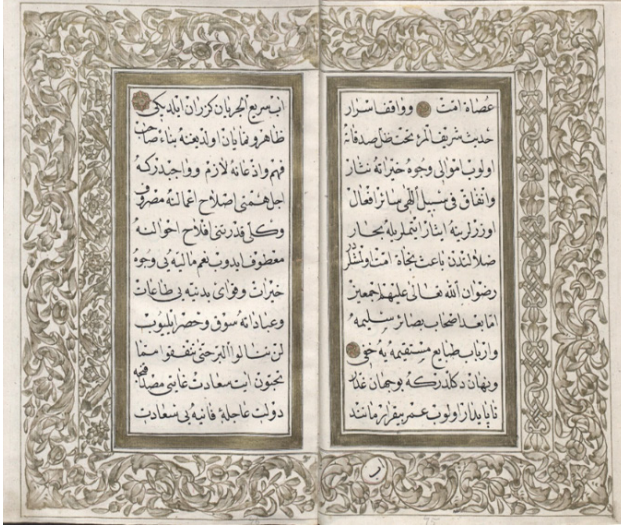 عصاة امت وواقف اسرار
حدیث شریفلری تحت ظل صدقاته
اولوب اموالی وجوه خیراته نثار
وانفاق فی سبیل الهی سائر افعال
اوزرلرینه ایثار ایتملریله بحار
ضلالتدن باعث نجاة امت اولمشلردر
رضوان الله تعالی علیهم اجمعین
اما بعد اصحاب بصائر سلیمه
وارباب طبایع مستقیمه یه خفی
وپنهان دکلدرکه بو جهان غدار
ناپایدار اولوب عمر بیقرار مانند
اب سریع الجریان کزران ایلدیکی
ظاهر ونمایان اولدیغنه بناء صاحب
فهم واذعانه لازم وواجبدرکه
اجل همتنی اصلاح اعمالنه مصروف
وکل قدرتنی افلاح احوالنه
معطوف ایدوب نعم مالیه یی وجوه
خیرات وقوای بدنیه یی طاعات
وعباداته سوق وحصر ایلیوب
لن تنالوا البر حتی تنفقوا مما
تحبون ایت سعادت غایتی مصداقنجه
دولت عاجلهٔ فانیه یی سعادت